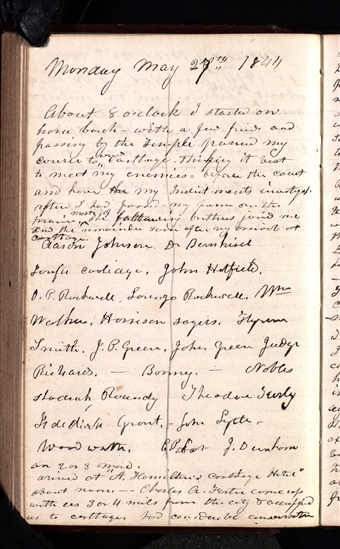 Monday May 27th 1844
About 8 oclock I started on
horse back - with a few friends and
passing by the Temple pursued my
course toward Carthage. thinking it best
to meet my enemies. before the court
and have my Indictments investigated.
after I had passed my farm on the
prairie most of the following brethren joined me
and the remainder soon after my arrival at
Carthage.
Aaron Johnson, Dr Bernhisel
Joseph Coolidge, John Hatfield,
O. P. Rockwell, Lorenzo Rockwell, Wm
Walker, Harrison Sagers, Hyrum
Smith, J. P. Green, John Green Judge
Richards, — Bonney — Nobles
Shadrach Roundy Theodore Turly
Jedediah Grant, John Lytle,
Woodworth, J. Durham
on 2 or 3 more.
arrived at A. Hamilton's Carthage Hotel
about noon — Charles A. Foster come up
with us 3 or 4 miles from the city & accompanied
us to carthage had considerable conversation